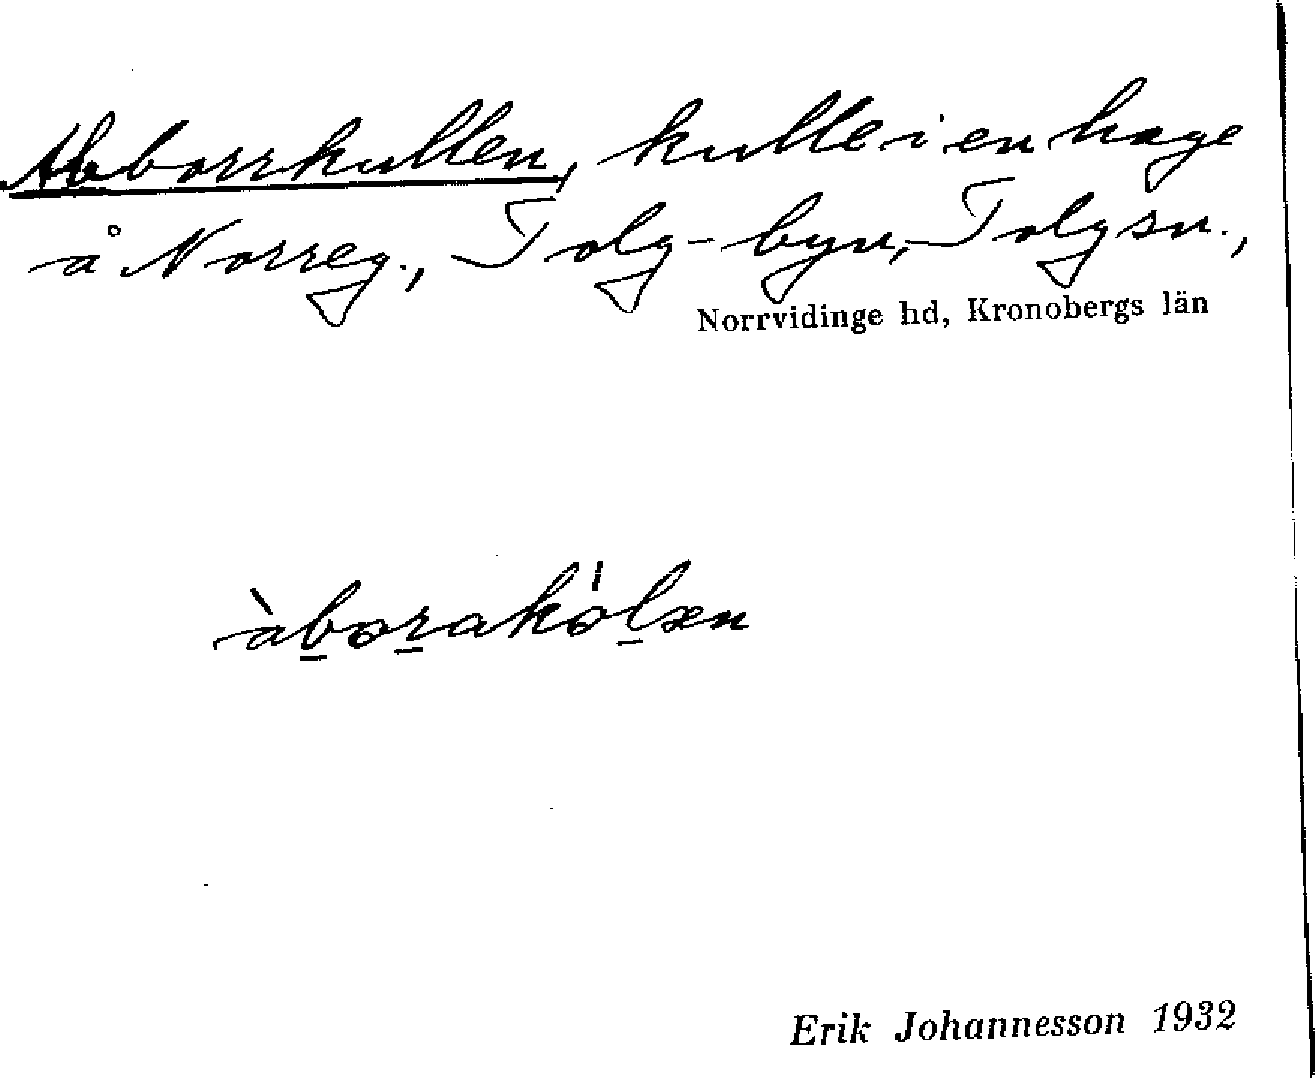 Abborrkullen, kulle i en hage
å Norreg., Tolg-byn, Tolg sn.,
Norrvidinge hd, Kronobergs län
àb̲or̲akól̲æn
Erik Johannesson 1932